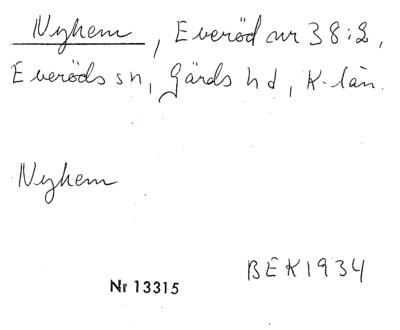 Nyhem, Everöd nr 38:2,
Everöds sn, Gärds hd, K-län.
Nyhem
BEK1934
Nr 13315